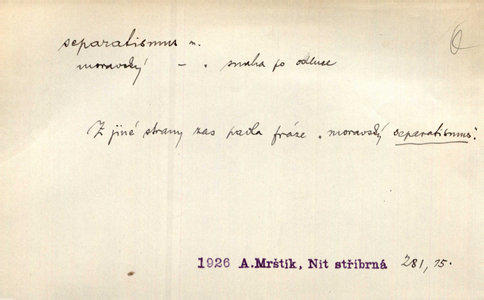 separatismus m.
moravský — „ snaha po odluce
Z jiné strany zas padla fráze „moravský separatismus“.
1926 A.Mrštík, Nit stříbrná 281,15.